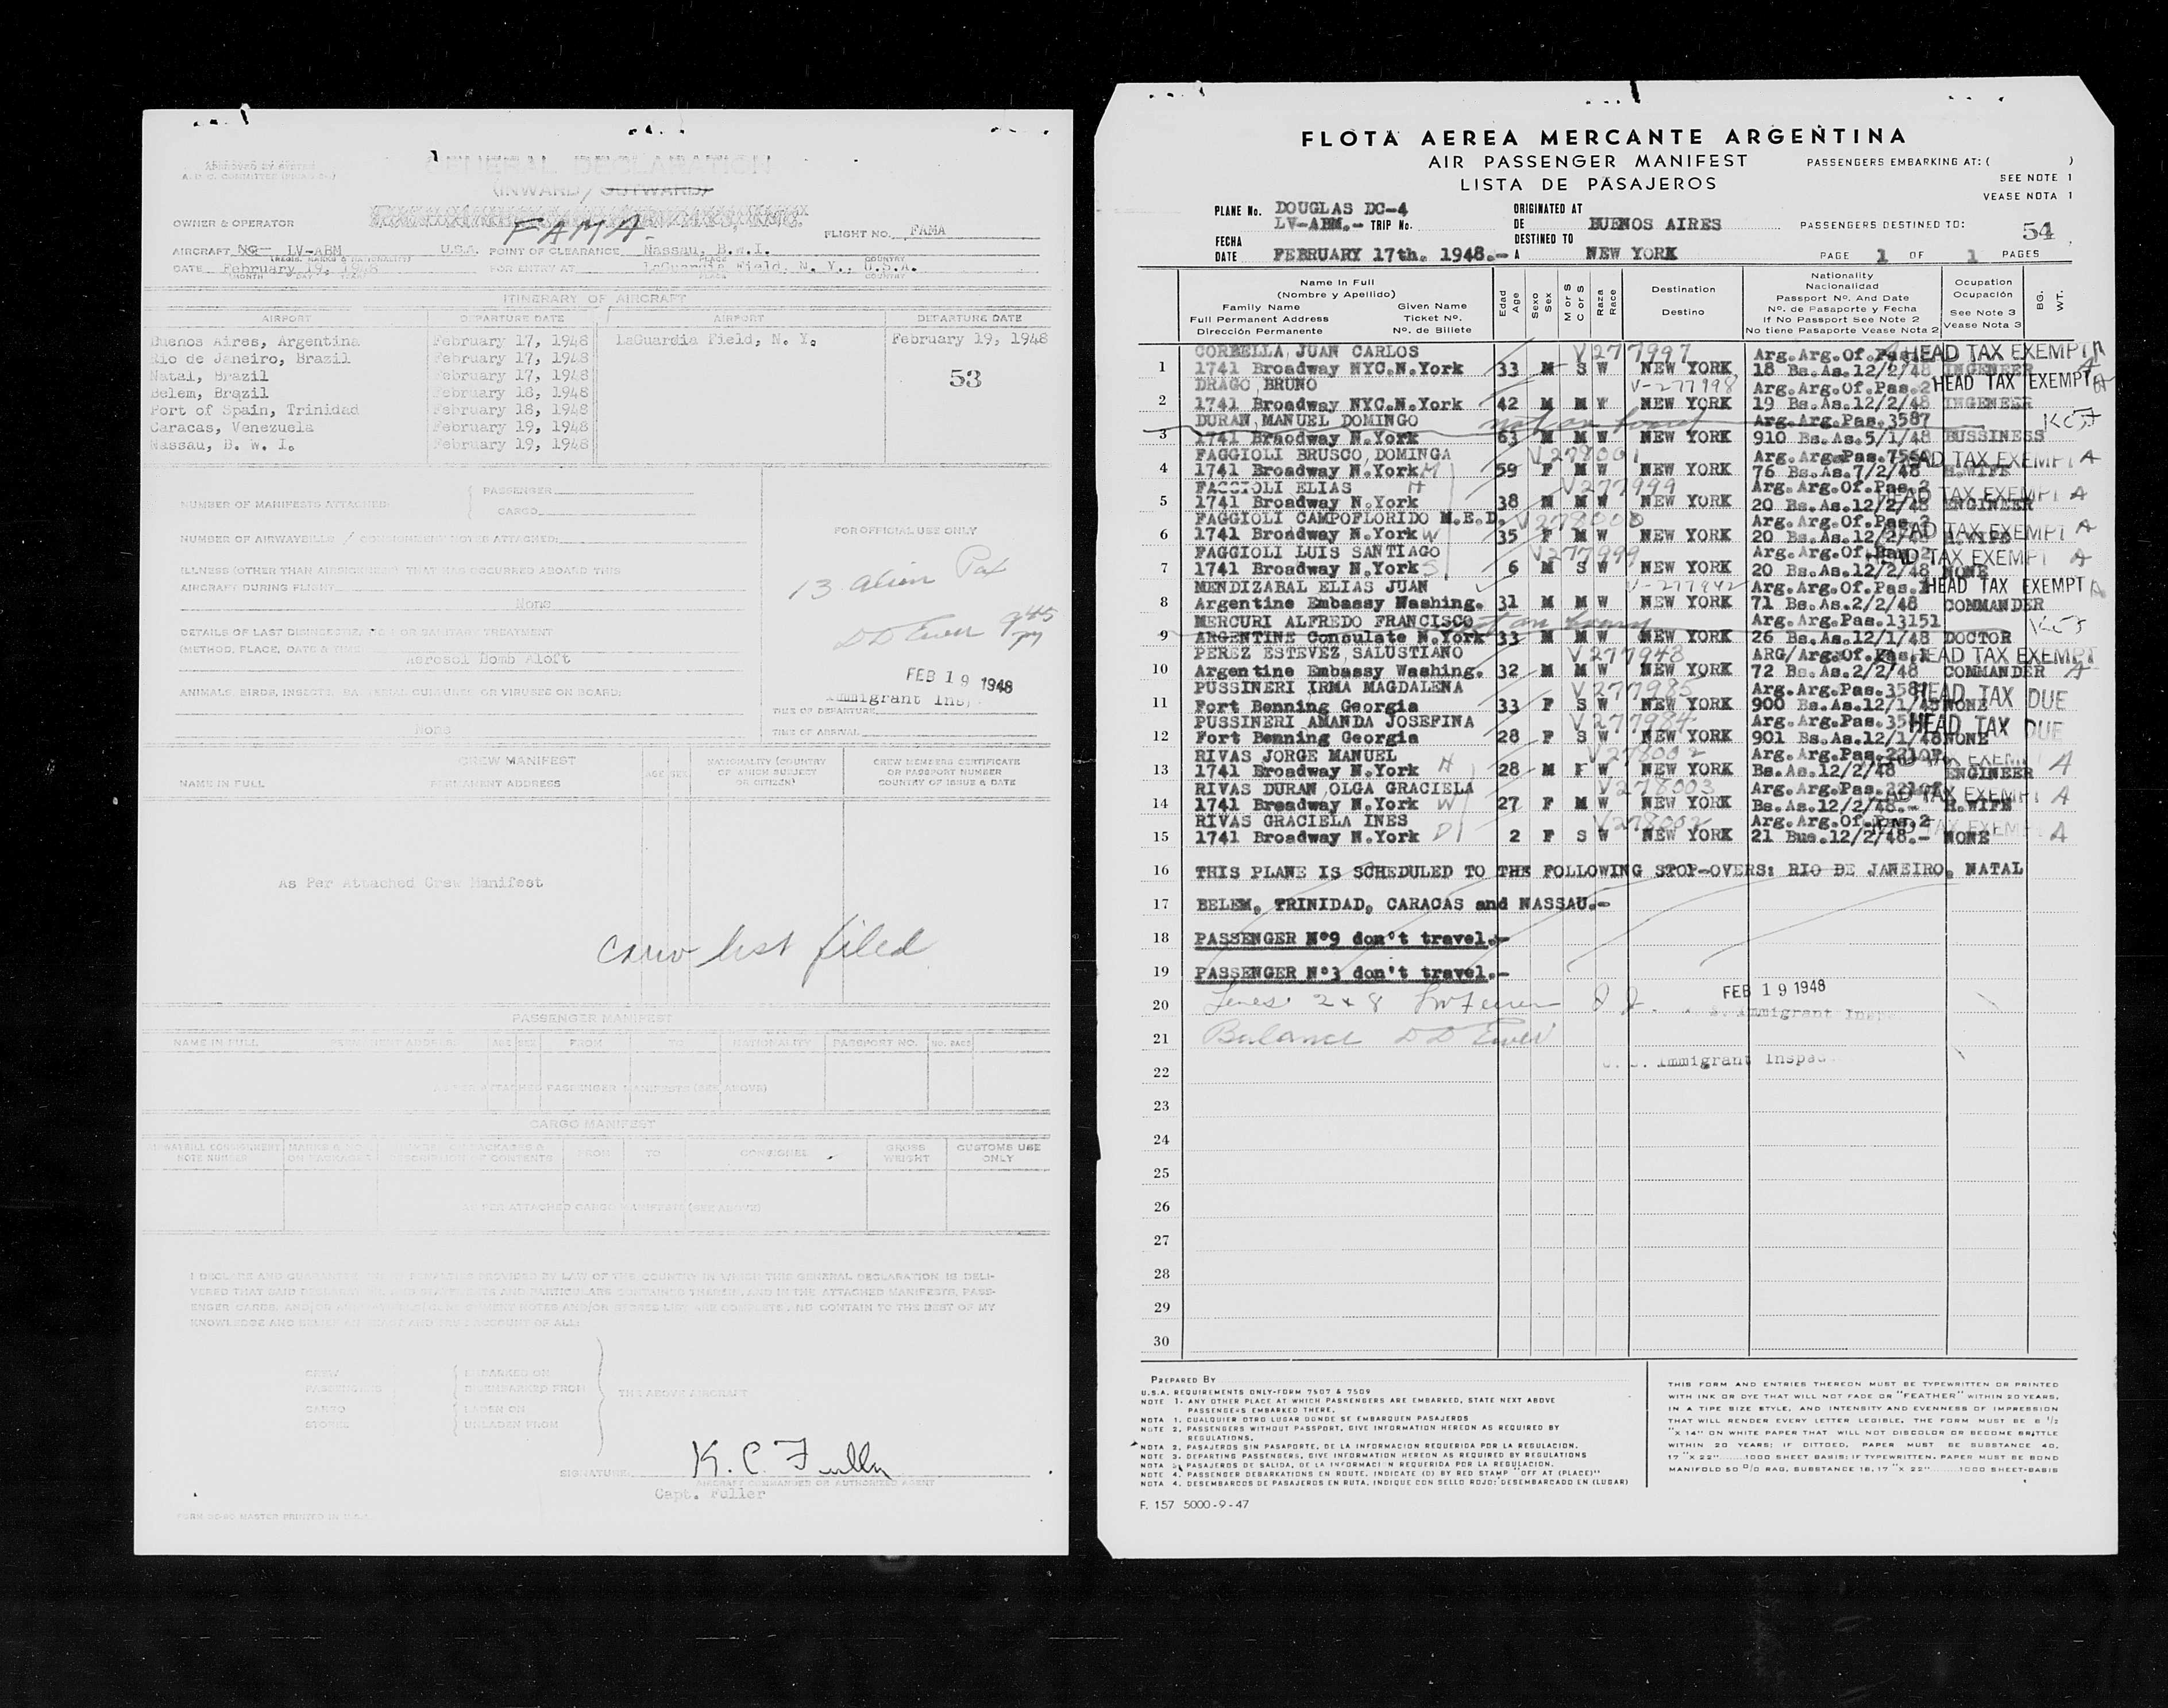 GENERAL DECLARATION
(INWARD / OUTWARD)
OWNER & OPERATOR
F A M A.
FLIGHT NO. FAMA
AIRCRAFT NC- LV-ABM U.S.A. POINT OF CLEARANCE Nassau, B.W.I.
(REGIS. MARKS & NATIONALITY) PLACE COUNTRY
DATE February 19, 1948 FOR ENTRY AT LaGuardia Field, N. Y., U.S.A.
MONTH DAY YEAR PLACE COUNTRY
ITINERARY OF AIRCRAFT
AIRPORT DEPARTURE DATE AIRPORT DEPARTURE DATE
Buenos Aires, Argentina February 17, 1948 LaGuardia Field, N. Y. February 19, 1948
Rio de Janeiro, Brazil February 17, 1948
Natal, Brazil February 17, 1948
53
Belem, Brazil February 18, 1948
Port of Spain, Trinidad February 18, 1948
Caracas, Venezuela February 19, 1948
Nassau, B. W. I. February 19, 1948
NUMBER OF MANIFESTS ATTACHED:
PASSENGER
CARGO
FOR OFFICIAL USE ONLY
NUMBER OF AIRWAYBILLS / CONSIGNMENT NOTES ATTACHED:
ILLNESS (OTHER THAN AIRSICKNESS) THAT HAS OCCURRED ABOARD THIS
AIRCRAFT DURING FLIGHT
None
13 alien Pax
DETAILS OF LAST DISINSECTIZATION OR SANITARY TREATMENT
(METHOD, PLACE, DATE & TIME)
Aerosol Bomb Aloft
DD Ewer
FEB 19 1948
ANIMALS, BIRDS, INSECTS, BACTERIAL CULTURES OR VIRUSES ON BOARD:
Immigrant Insp.
TIME OF DEPARTURE
None
TIME OF ARRIVAL
CREW MANIFEST
NAME IN FULL PERMANENT ADDRESS AGE SEX NATIONALITY (COUNTRY OF WHICH SUBJECT OR CITIZEN) CREW MEMBERS CERTIFICATE OR PASSPORT NUMBER COUNTRY OF ISSUE & DATE
As Per Attached Crew Manifest
crew list filed
PASSENGER MANIFEST
NAME IN FULL PERMANENT ADDRESS AGE SEX FROM TO NATIONALITY PASSPORT NO. NO. BAGS
AS PER ATTACHED PASSENGER MANIFESTS (SEE ABOVE)
CARGO MANIFEST
AIRWAYBILL CONSIGNMENT NOTE NUMBER MARKS & NOS ON PACKAGES FROM TO CONSIGNEE GROSS WEIGHT CUSTOMS USE ONLY
AS PER ATTACHED CARGO MANIFESTS (SEE ABOVE)
CREW
PASSENGERS
CARGO
STORES
EMBARKED ON
DISEMBARKED FROM
LADEN ON
UNLADEN FROM
THE ABOVE AIRCRAFT
SIGNATURE K. C. Fuller
AIRCRAFT COMMANDER OR AUTHORIZED AGENT
Capt. Fuller
FLOTA AEREA MERCANTE ARGENTINA
AIR PASSENGER MANIFEST
LISTA DE PASAJEROS
PASSENGERS EMBARKING AT: ( )
SEE NOTE 1
VEASE NOTA 1
PLANE No. DOUGLAS DC-4
LV-ABM.- TRIP No.
ORIGINATED AT
DE BUENOS AIRES
DESTINED TO
A NEW YORK
PASSENGERS DESTINED TO:
54
FECHA
DATE FEBRUARY 17th. 1948.-
PAGE 1 OF 1 PAGES
Name In Full
(Nombre y Apellido)
Family Name Given Name
Full Permanent Address Ticket Nº.
Dirección Permanente Nº. de Billete
Edad Age
Sexo Sex
M or S C or S
Raza Race
Destination
Destino
Nationality
Nacionalidad
Passport Nº. And Date
Nº. de Pasaporte y Fecha
If No Passport See Note 2
No tiene Pasaporte Vease Nota 2
Occupation
Ocupación
See Note 3
Vease Nota 3
BG. WT.
CORBELLA, JUAN CARLOS V277997 Arg.Arg.Of.Pas. HEAD TAX EXEMPT A
1 1741 Broadway NYC.N.York 33 M S W NEW YORK 18 Bs.As.12/2/48 INGENEER
DRAGO, BRUNO V-277998 Arg.Arg.Of.Pas.2 HEAD TAX EXEMPT A
2 1741 Broadway NYC.N.York 42 M M W NEW YORK 19 Bs.As.12/2/48 INGENEER
DURAN, MANUEL DOMINGO not on board Arg.Arg.Pas.3587 KCF
3 1741 Braodway N.York 63 M M W NEW YORK 910 Bs.As.5/1/48 BUSSINESS
FAGGIOLI BRUSCO, DOMINGA V278001 Arg.Arg.Pas.756 HEAD TAX EXEMPT A
4 1741 Broadway N.York M 59 F M W NEW YORK 76 Bs.As.7/2/48 H.WIFE
FAGGIOLI ELIAS H V277999 Arg.Arg.Of.Pas.2 HEAD TAX EXEMPT A
5 1741 Broadway N.York 38 M M W NEW YORK 20 Bs.As.12/2/48 ENGINEER
FAGGIOLI CAMPOFLORIDO M.E.D. V278000 Arg.Arg.Of.Pas.2 HEAD TAX EXEMPT A
6 1741 Broadway N.York W 35 F M W NEW YORK 20 Bs.As.12/2/48 H.WIFE
FAGGIOLI LUIS SANTIAGO V277999 Arg.Arg.Of.Pas.2 HEAD TAX EXEMPT A
7 1741 Broadway N.York S 6 M S W NEW YORK 20 Bs.As.12/2/48 NONE
MENDIZABAL ELIAS JUAN V-277942 Arg.Arg.Of.Pas.1 HEAD TAX EXEMPT A
8 Argentine Embassy Washing. 31 M M W NEW YORK 71 Bs.As.2/2/48 COMMANDER
MERCURI ALFREDO FRANCISCO not on board Arg.Pas.13151 KCF
9 ARGENTINE Consulate N.York 33 M M W NEW YORK 26 Bs.As.12/1/48 DOCTOR
PEREZ ESTEVEZ, SALUSTIANO V277943 ARG/Arg.Of.Pas.1 HEAD TAX EXEMPT
10 Argentine Embassy Washing. 32 M M W NEW YORK 72 Bs.As.2/2/48 COMMANDER A
PUSSINERI IRMA MAGDALENA V277985 Arg.Arg.Pas.358 HEAD TAX DUE
11 Fort Benning Georgia 33 F S W NEW YORK 900 Bs.As.12/1/48 NONE
PUSSINERI AMANDA JOSEFINA V277984 Arg.Arg.Pas.35 HEAD TAX DUE
12 Fort Benning Georgia 28 F S W NEW YORK 901 Bs.As.12/1/48 NONE
RIVAS JORGE MANUEL V278002 Arg.Arg.Pas. HEAD TAX EXEMPT A
13 1741 Broadway N.York H 28 M F W NEW YORK Bs.As.12/2/48 ENGINEER
RIVAS DURAN, OLGA GRACIELA V278003 Arg.Arg.Pas. HEAD TAX EXEMPT A
14 1741 Breadway N.York W 27 F M W NEW YORK Bs.As.12/2/48.- H.WIFE
RIVAS GRACIELA INES V278002 Arg.Arg.Of.Pas.2 HEAD TAX EXEMPT A
15 1741 Broadway N.York D 2 F S W NEW YORK 21 Bue.12/2/48.- NONE
16 THIS PLANE IS SCHEDULED TO THE FOLLOWING STOP-OVERS: RIO DE JANEIRO, NATAL
17 BELEM, TRINIDAD, CARACAS and NASSAU.-
18 PASSENGER Nº9 don't travel.-
19 PASSENGER Nº3 don't travel.-
20 Lines 2 & 8 FEB 19 1948
Immigrant Inspe
21 Balance DD Ewer
22 Immigrant Inspec
23
24
25
26
27
28
29
30
PREPARED BY
U.S.A. REQUIREMENTS ONLY-FORM 7507 & 7509
NOTE 1. ANY OTHER PLACE AT WHICH PASSENGERS ARE EMBARKED, STATE NEXT ABOVE
PASSENGERS EMBARKED THERE.
NOTA 1. CUALQUIER OTRO LUGAR DONDE SE EMBARQUEN PASAJEROS
NOTE 2. PASSENGERS WITHOUT PASSPORT, GIVE INFORMATION HEREON AS REQUIRED BY
REGULATIONS.
NOTA 2. PASAJEROS SIN PASAPORTE, DE LA INFORMACION REQUERIDA POR LA REGULACION.
NOTE 3. DEPARTING PASSENGERS, GIVE INFORMATION HEREON AS REQUIRED BY REGULATIONS
NOTA 3. PASAJEROS DE SALIDA, DE LA INFORMACI N REQUERIDA POR LA REGULACION.
NOTE 4. PASSENGER DEBARKATIONS EN ROUTE, INDICATE (D) BY RED STAMP "OFF AT (PLACE)"
NOTA 4. DESEMBARCOS DE PASAJEROS EN RUTA, INDIQUE CON SELLO ROJO: DESEMBARCADO EN (LUGAR)
THIS FORM AND ENTRIES THEREON MUST BE TYPEWRITTEN OR PRINTED
WITH INK OR DYE THAT WILL NOT FADE OR "FEATHER" WITHIN 20 YEARS,
IN A TYPE SIZE STYLE, AND INTENSITY AND EVENNESS OF IMPRESSION
THAT WILL RENDER EVERY LETTER LEGIBLE. THE FORM MUST BE 8 1/2
"X 14" ON WHITE PAPER THAT WILL NOT DISCOLOR OR BECOME BRITTLE
WITHIN 20 YEARS; IF DITTOED, PAPER MUST BE SUBSTANCE 40,
17 "X 22" ...... 1000 SHEET BASIS; IF TYPEWRITTEN, PAPER MUST BE BOND
MANIFOLD 50 0/0 RAG, SUBSTANCE 18, 17 "X 22" ...... 1000 SHEET-BASIS
F. 157 5000-9-47